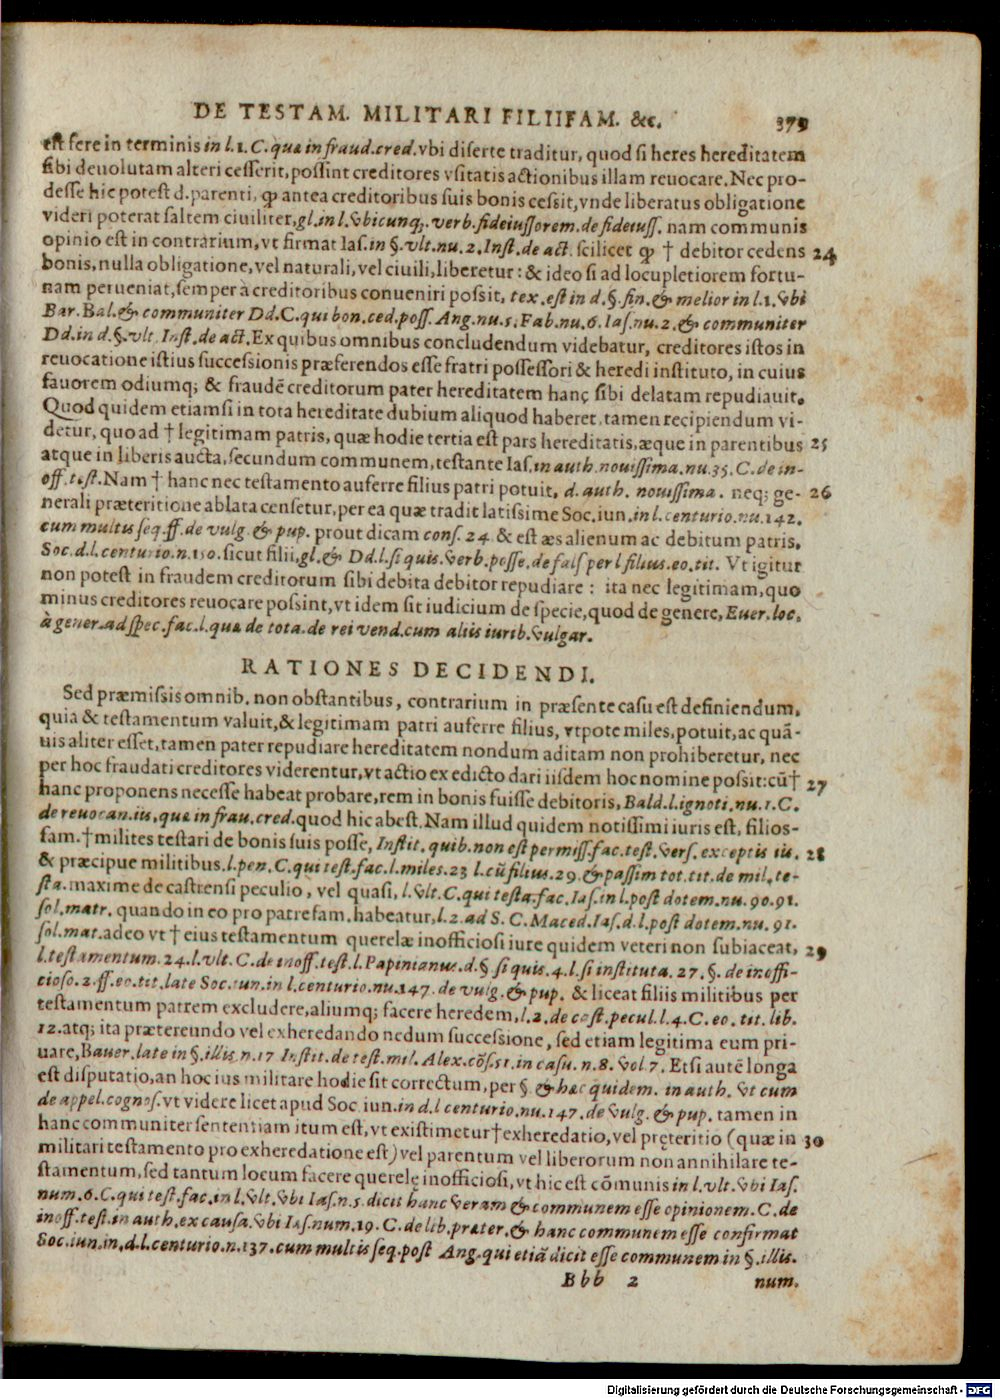 DE TESTAM. MILITARI FILIIFAM. &c. 379
est fere in terminis in l.1. C. quæ in fraud. cred. vbi diserte traditur, quod si heres hereditatem
sibi deuolutam alteri cesserit, possint creditores vsitatis actionibus illam reuocare. Nec pro-
desse hic potest d. parenti, ꝙ antea creditoribus suis bonis cessit, vnde liberatus obligatione
videri poterat saltem ciuiliter. gl. in l. vbicunq; verb. fideiussorem. de fideiuss. nam communis
opinio est in contrarium, vt firmat Ias. in §. vlt. nu. 2. Inst. de act. scilicet ꝙ † debitor cedens 24
bonis, nulla obligatione, vel naturali, vel ciuili, liberetur: & ideo si ad locupletiorem fortu-
nam perueniat, semper à creditoribus conueniri possit, tex. est in d. §. fin. & melior in l. 1. vbi
Bar. Bal. & communiter Dd. C. qui bon. ced. poss. Ang. nu. 5. Fab. nu. 6. Ias. nu. 2. & communiter
Dd. in d. §. vlt. Inst. de act. Ex quibus omnibus concludendum videbatur, creditores istos in
reuocatione istius successionis præferendos esse fratri possessori & heredi instituto, in cuius
fauorem odiumq; & fraudē creditorum pater hereditatem hanc sibi delatam repudiauit.
Quod quidem etiamsi in tota hereditate dubium aliquod haberet, tamen recipiendum vi-
detur, quo ad † legitimam patris, quæ hodie tertia est pars hereditatis, æque in parentibus 25
atque in liberis aucta, secundum communem, testante Ias. in auth. nouissima. nu. 35. C. de in-
off. test. Nam † hanc nec testamento auferre filius patri potuit, d. auth. nouissima. neq; ge- 26
nerali præteritione ablata censetur, per ea quæ tradit latissime Soc. iun. in l. centurio. nu. 142.
cum multis seq. ff. de vulg. & pup. prout dicam cons. 24. & est æs alienum ac debitum patris.
Soc. d. l. centurio. n. 150. sicut filii, gl. & Dd. l. si quis. verb. posse. de fals per l filius. eo. tit. Vt igitur
non potest in fraudem creditorum sibi debita debitor repudiare: ita nec legitimam, quo
minus creditores reuocare possint, vt idem sit iudicium de specie, quod de genere, Euer. loc.
à gener. ad spec. fac. l. quæ de tota. de rei vend. cum aliis iurib. vulgar.
RATIONES DECIDENDI.
Sed præmissis omnib. non obstantibus, contrarium in præsente casu est definiendum,
quia & testamentum valuit, & legitimam patri auferre filius, vtpote miles, potuit, ac quā-
uis aliter esset, tamen pater repudiare hereditatem nondum aditam non prohiberetur, nec
per hoc fraudati creditores viderentur, vt actio ex edicto dari iisdem hoc nomine possit: cū † 27
hanc proponens necesse habeat probare, rem in bonis fuisse debitoris, Bald. l. ignoti. nu. 1. C.
de reuocan. iis, quæ in frau. cred. quod hic abest. Nam illud quidem notissimi iuris est, filios-
fam. † milites testari de bonis suis posse, Instit. quib. non est permiss. fac. test. vers. exceptis iis. 28
& præcipue militibus. l. pen. C. qui test. fac. l. miles. 23 l. cū filius. 29. & passim tot. tit. de mil. te-
sta. maxime de castrensi peculio, vel quasi, l. vlt. C. qui testa. fac. Ias. in l. post dotem. nu. 90. 91.
sol. matr. quando in eo pro patrefam. habeatur, l. 2. ad S. C. Maced. Ias. d. l. post dotem. nu. 91.
sol. mat. adeo vt † eius testamentum querelæ inofficiosi iure quidem veteri non subiaceat, 29
l. testamentum. 24. l. vlt. C. de inoff. test. l. Papinianus. d. § si quis. 4. l. si instituta. 27. §. de inoffi-
cioso. 2. ff. eo. tit. late Soc. iun. in l. centurio. nu. 147. de vulg. & pup. & liceat filiis militibus per
testamentum patrem excludere, aliumq; facere heredem, l. 2. de cast. pecul. l. 4. C. eo. tit. lib.
12. atq; ita prætereundo vel exheredando nedum successione, sed etiam legitima eum pri-
uare, Bauer. late in §. illis. n. 17 Instit. de test. mil. Alex. cōs. 51. in casu. n. 8. vol 7. Etsi autē longa
est disputatio, an hoc ius militare hodie sit correctum, per §. & hæc quidem. in auth. vt cum
de appel. cognos. vt videre licet apud Soc iun. in d. l centurio. nu. 147. de vulg. & pup. tamen in
hanc communiter sententiam itum est, vt existimetur † exheredatio, vel pręteritio (quæ in 30
militari testamento pro exheredatione est) vel parentum vel liberorum non annihilare te-
stamentum, sed tantum locum facere querelę inofficiosi, vt hic est cōmunis in l. vlt. vbi Ias.
num. 6. C. qui test. fac. in l. vlt. vbi Ias. n. 5. dicit hanc veram & communem esse opinionem. C. de
inoff. test. in auth. ex causa. vbi Ias. num. 19. C. de lib. præter. & hanc communem esse confirmat
Soc. iun. in. d. l. centurio. n. 137. cum multis seq. post Ang. qui etiā dicit esse communem in §. illis.
Bbb 2 num.
Digitalisierung gefördert durch die Deutsche Forschungsgemeinschaft - DFG